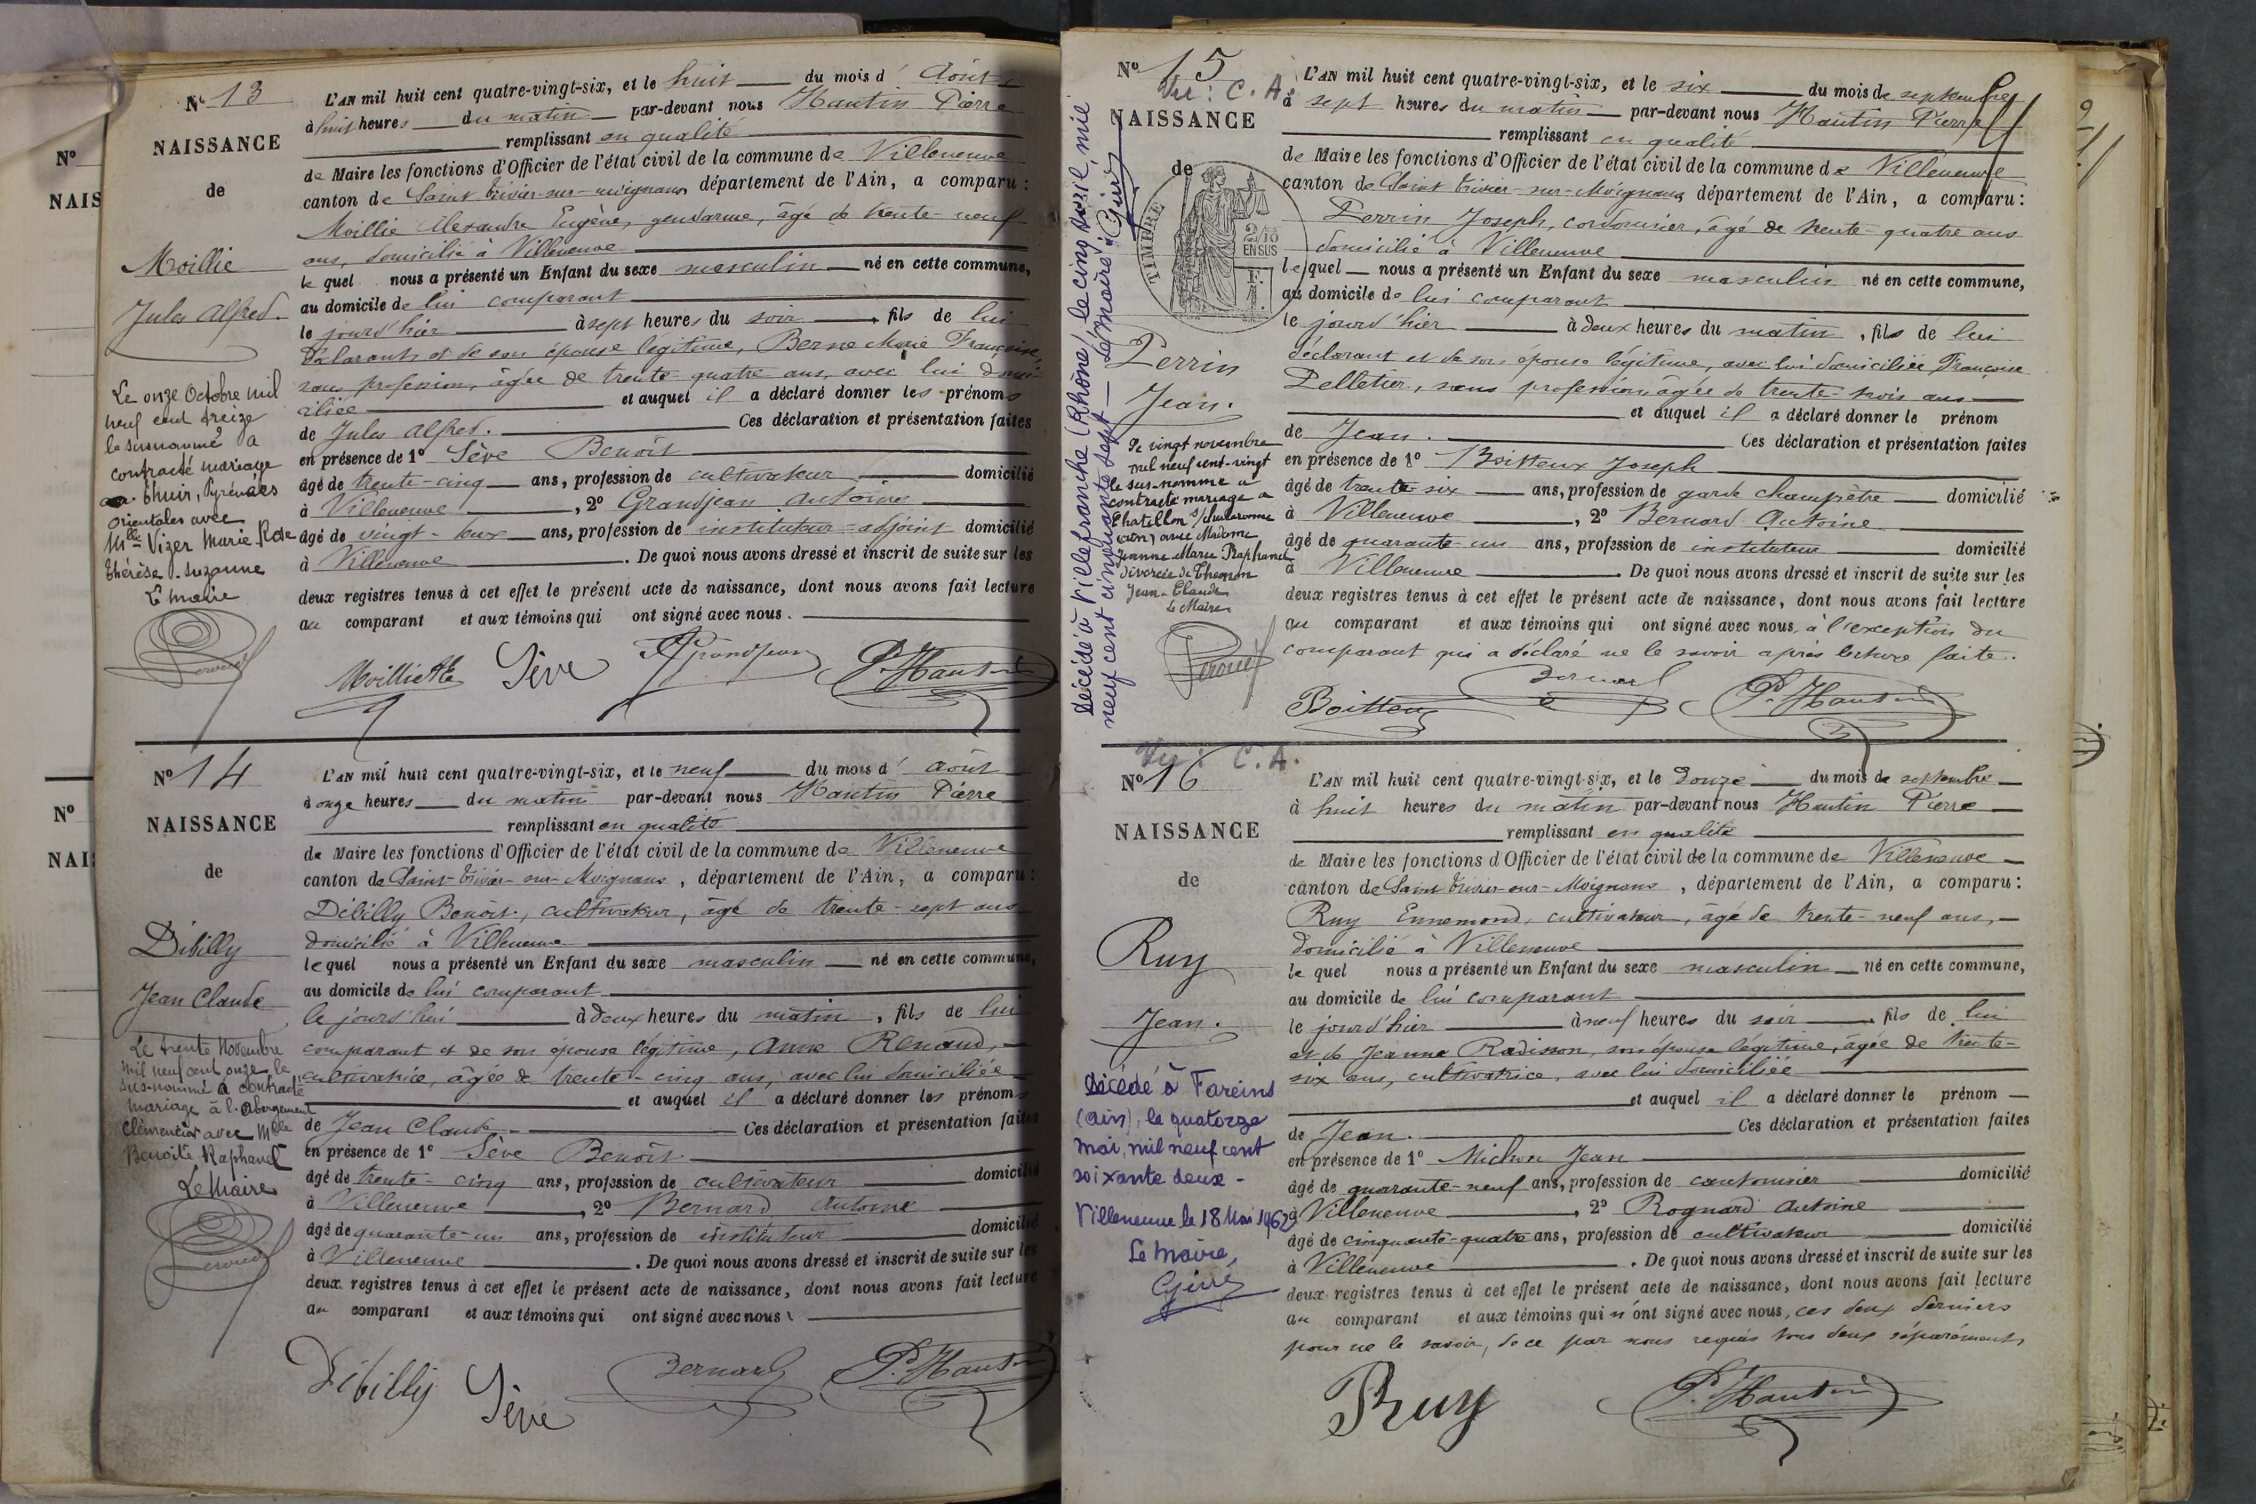 N° 13
NAISSANCE
de
Moillie
Jules Alfred.
Le onze Octobre mil
neuf cent treize
le susnommé a
contracté mariage
à Thuir, Pyrénées
Orientales avec
Mlle Vizer Marie Rose
Thérèse Suzanne
Le Maire
L'AN mil huit cent quatre-vingt-six, et le huit du mois d' Août
à huit heures du matin par-devant nous Hautin Pierre
remplissant en qualité
de Maire les fonctions d'Officier de l'état civil de la commune de Villeneuve
canton de Saint Trivier-sur-Moignans département de l'Ain, a comparu :
Moillie Alexandre Eugène, gendarme, âgé de trente-neuf
ans, domicilié à Villeneuve
le quel nous a présenté un Enfant du sexe masculin né en cette commune,
au domicile de lui comparant
le jourd'hier à sept heures du soir, fils de lui
déclarant et de son épouse légitime, Berne Marie Françoise,
sans profession, âgée de trente quatre ans, avec lui domi-
ciliée et auquel il a déclaré donner les prénoms
de Jules Alfred. Ces déclaration et présentation faites
en présence de 1° Sève Benoît
âgé de trente-cinq ans, profession de cultivateur domicilié
à Villeneuve, 2° Grandjean Antoine
âgé de vingt- ans, profession de instituteur-adjoint domicilié
à Villeneuve. De quoi nous avons dressé et inscrit de suite sur les
deux registres tenus à cet effet le présent acte de naissance, dont nous avons fait lecture
au comparant et aux témoins qui ont signé avec nous.
Moillie AE Sève Grandjean P. Hautin
N° 14
NAISSANCE
de
Dibilly
Jean Claude
Le trente Novembre
mil neuf cent onze le
sus-nommé a contracté
mariage à l'Abergement
Clémenciat avec Mlle
Benoite Raphanel
Le Maire
L'AN mil huit cent quatre-vingt-six, et le neuf du mois d' août
à onze heures du matin par-devant nous Hautin Pierre
remplissant en qualité
de Maire les fonctions d'Officier de l'état civil de la commune de Villeneuve
canton de Saint-Trivier-sur-Moignans, département de l'Ain, a comparu :
Dibilly Benoît, cultivateur, âgé de trente-sept ans
domicilié à Villeneuve
le quel nous a présenté un Enfant du sexe masculin né en cette commune,
au domicile de lui comparant
le jourd'hui à deux heures du matin, fils de lui
comparant et de son épouse légitime, Anne Renaud,
cultivatrice, âgée de trente-cinq ans, avec lui domiciliée
et auquel il a déclaré donner les prénoms
de Jean Claude. Ces déclaration et présentation faites
en présence de 1° Sève Benoît
âgé de trente-cinq ans, profession de cultivateur domicilié
à Villeneuve, 2° Bernard Antoine
âgé de quarante-un ans, profession de instituteur domicilié
à Villeneuve. De quoi nous avons dressé et inscrit de suite sur les
deux registres tenus à cet effet le présent acte de naissance, dont nous avons fait lecture
au comparant et aux témoins qui ont signé avec nous.
Dibilly Sève Bernard P. Hautin
N° 15
Vu : C. A.
NAISSANCE
de
TIMBRE
2/10
EN SUS
Perrin
Jean.
Le vingt novembre
mil neuf cent-vingt
le sus-nommé a
contracté mariage a
Chatillon s/Chalaronne
(Ain) avec Madame
Jeanne Marie Raphanel
divorcée de Thenon
Jean-Claude
Le Maire
Décédé à Villefranche (Rhône) le cinq avril, mil
neuf cent cinquante sept - Le Maire : Giré
L'AN mil huit cent quatre-vingt-six, et le six du mois de septembre
à sept heures du matin par-devant nous Hautin Pierre
remplissant en qualité
de Maire les fonctions d'Officier de l'état civil de la commune de Villeneuve
canton de Saint Trivier-sur-Moignans département de l'Ain, a comparu :
Perrin Joseph, cordonnier, âgé de trente-quatre ans
domicilié à Villeneuve
le quel nous a présenté un Enfant du sexe masculin né en cette commune,
au domicile de lui comparant
le jourd'hier à deux heures du matin, fils de lui
déclarant et de son épouse légitime, avec lui domiciliée, Françoise
Pelletier, sans profession, âgée de trente-trois ans
et auquel il a déclaré donner le prénom
de Jean. Ces déclaration et présentation faites
en présence de 1° Boitteux Joseph
âgé de trente six ans, profession de garde champêtre domicilié
à Villeneuve, 2° Bernard Antoine
âgé de quarante-un ans, profession de instituteur domicilié
à Villeneuve. De quoi nous avons dressé et inscrit de suite sur les
deux registres tenus à cet effet le présent acte de naissance, dont nous avons fait lecture
au comparant et aux témoins qui ont signé avec nous, à l'exception du
comparant qui a déclaré ne le savoir après lecture faite.
Boitteux Bernard P. Hautin
Vu : C. A.
N° 16
NAISSANCE
de
Ruy
Jean.
Décédé à Fareins
(Ain), le quatorze
mai, mil neuf cent
soixante deux -
Villeneuve le 18 Mai 1962
Le Maire,
Giré
L'AN mil huit cent quatre-vingt-six, et le douze du mois de septembre
à huit heures du matin par-devant nous Hautin Pierre
remplissant en qualité
de Maire les fonctions d'Officier de l'état civil de la commune de Villeneuve
canton de Saint Trivier-sur-Moignans, département de l'Ain, a comparu :
Ruy Ennemond, cultivateur, âgé de trente-neuf ans,
domicilié à Villeneuve
le quel nous a présenté un Enfant du sexe masculin né en cette commune,
au domicile de lui comparant
le jourd'hier à neuf heures du soir, fils de lui
et de Jeanne Radisson, son épouse légitime, âgée de trente-
six ans, cultivatrice, avec lui domiciliée
et auquel il a déclaré donner le prénom
de Jean. Ces déclaration et présentation faites
en présence de 1° Michon Jean
âgé de quarante-neuf ans, profession de cantonnier domicilié
à Villeneuve, 2° Rognard Antoine
âgé de cinquante-quatre ans, profession de cultivateur domicilié
à Villeneuve. De quoi nous avons dressé et inscrit de suite sur les
deux registres tenus à cet effet le présent acte de naissance, dont nous avons fait lecture
au comparant et aux témoins qui n'ont signé avec nous, ces deux derniers
pour ne le savoir, de ce par nous requis tous deux séparément,
Ruy P. Hautin
N°
NAIS
N°
NAIS